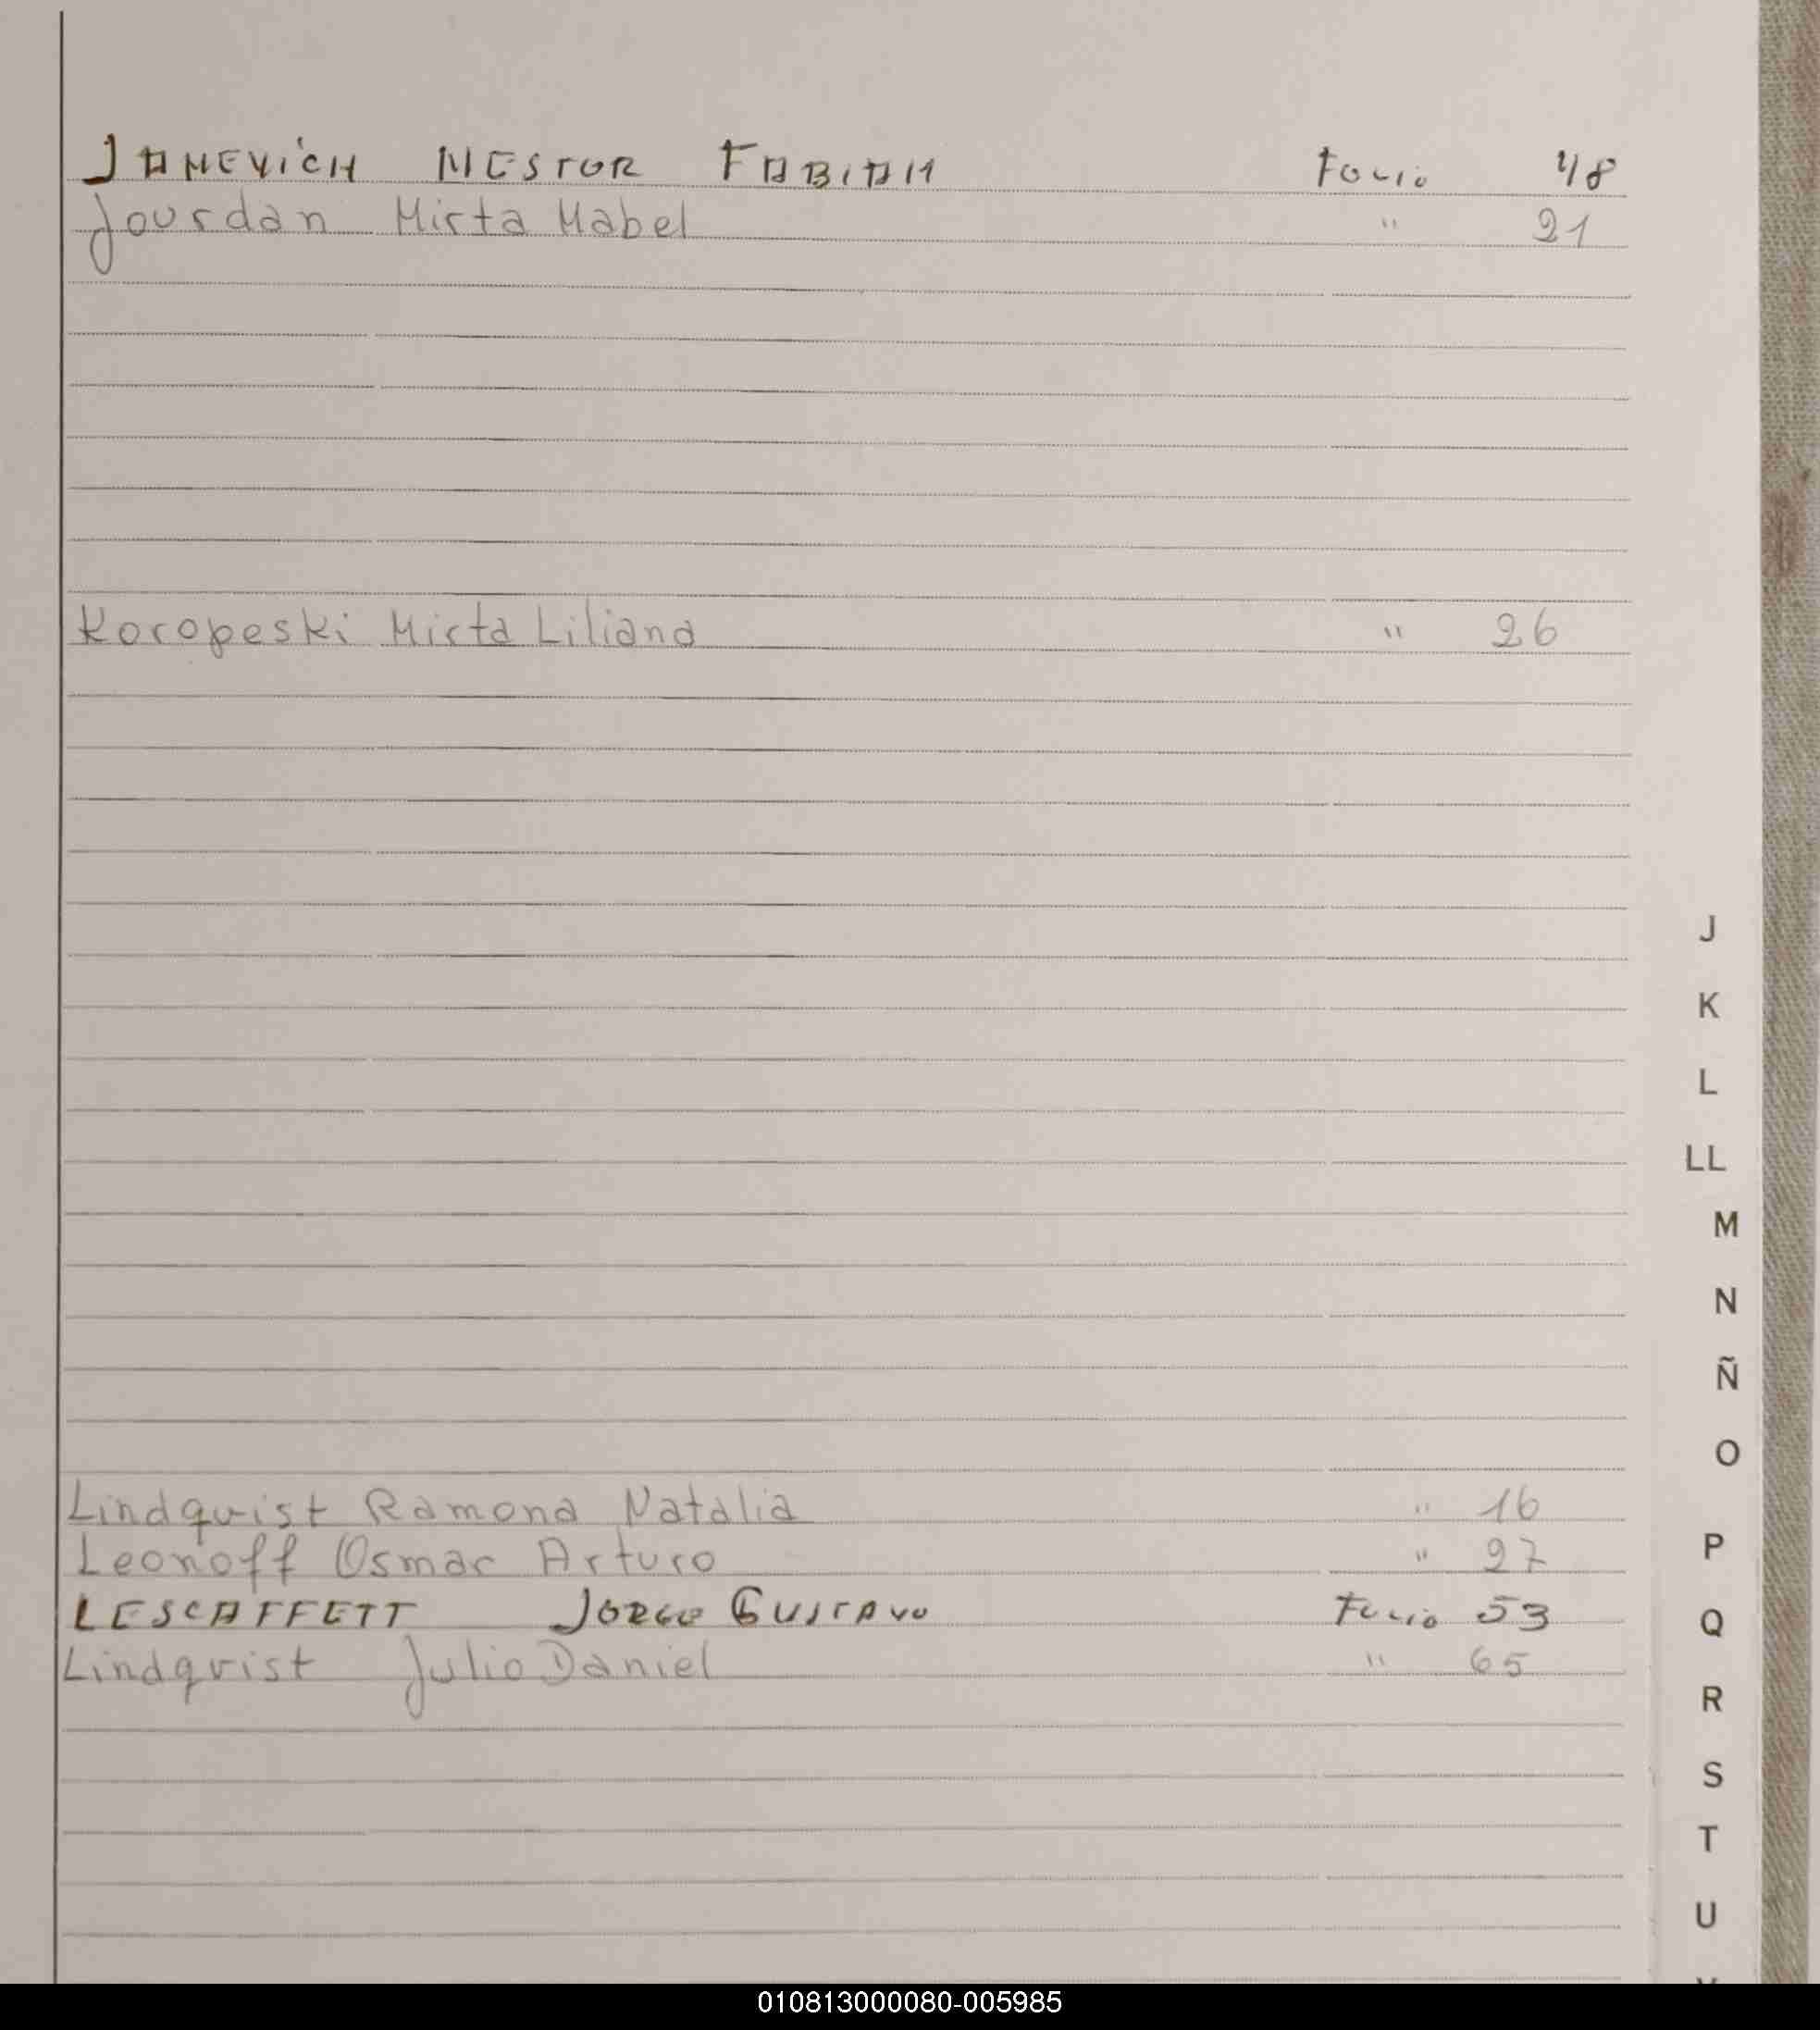 JANEVICH NESTOR FABIAN Folio 48
Jourdan Mirta Mabel " 21
Koropeski Mirta Liliana " 26
J
K
L
LL
M
N
Ñ
O
Lindquist Ramona Natalia " 16
P
Leonoff Osmar Arturo " 27
LESCAFFETT JORGE GUSTAVO Folio 53
Q
Lindqvist Julio Daniel " 65
R
S
T
U
010813000080-005985